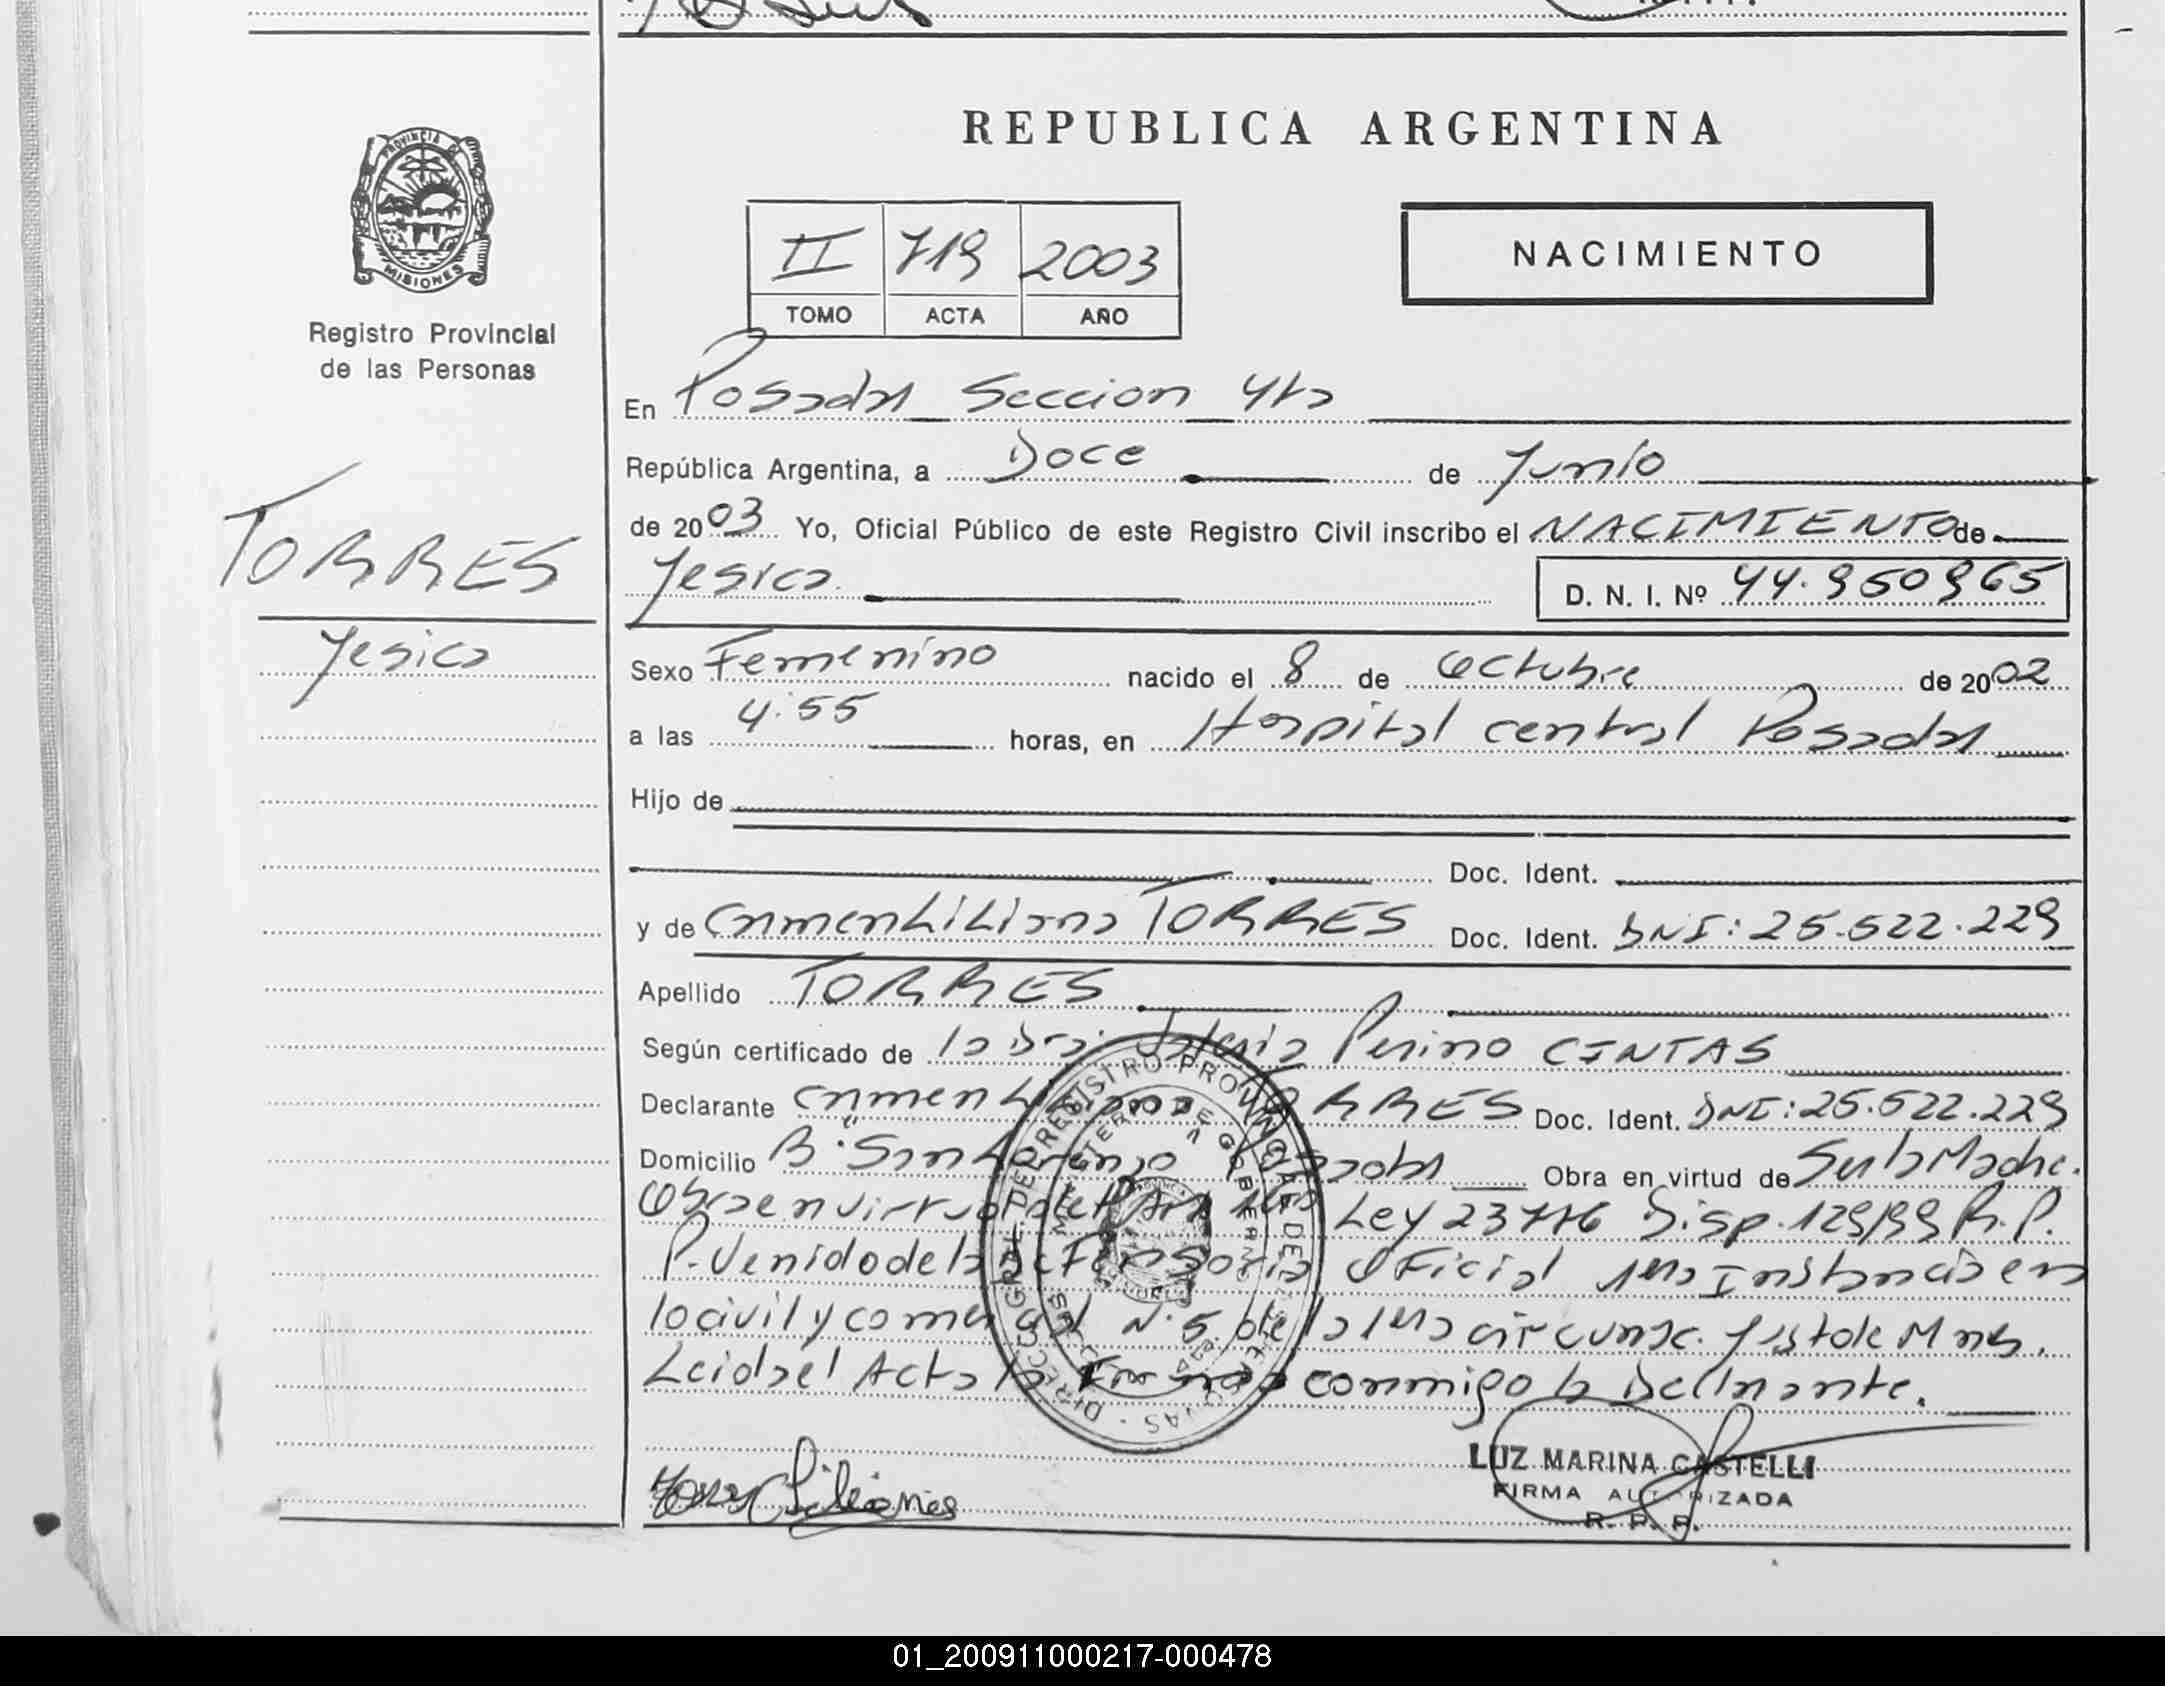 REPUBLICA ARGENTINA
PROVINCIA DE
MISIONES
Registro Provincial
de las Personas
II 719 2003
TOMO ACTA AÑO
NACIMIENTO
En Posadas Seccion 4ta
República Argentina, a Doce de Junio
de 2003 Yo, Oficial Público de este Registro Civil inscribo el NACIMIENTO de
Yesica D. N. I. Nº 44.950965
TORRES
Yesica
Sexo Femenino nacido el 8 de Octubre de 2002
a las 4:55 horas, en Hospital central Posadas
Hijo de
Doc. Ident.
y de Carmen Liliana TORRES Doc. Ident. DNI: 25.522.229
Apellido TORRES
Según certificado de la Dra: Perino CINTAS
Declarante Carmen Liliana TORRES Doc. Ident. DNI: 25.522.229
Domicilio Bº San Lorenzo Posadas Obra en virtud de Ser la Madre.
Obra en virtud de Ley 23776 Disp. 129/99 R.P.
P. Venido de la Defensoria Oficial 1era Instancia en
lo civil y comercial Nº 5 de la 1era circunsc. Just de Mnes.
Leida el Acta la Firma conmigo la Declarante.
DIRECC. GRAL. DEL REGISTRO PROVINCIAL DE LAS PERSONAS
MINISTERIO DE GOBIERNO
Liliana
LUZ MARINA CASTELLI
FIRMA AUTORIZADA
R. P. P.
01_200911000217-000478